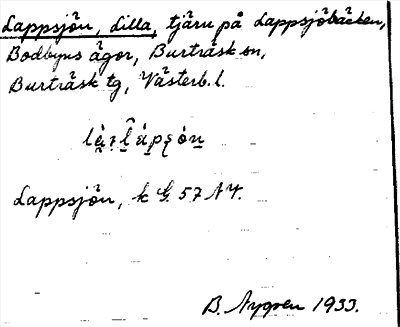 Lappsjön, Lilla, tjärn på Lappsjöbäcken,
Bodbyns ägor, Burträsk sn,
Burträsk tg, Västerb. l.
Lappsjön, k G. 57 NV.
B. Nygren 1933.